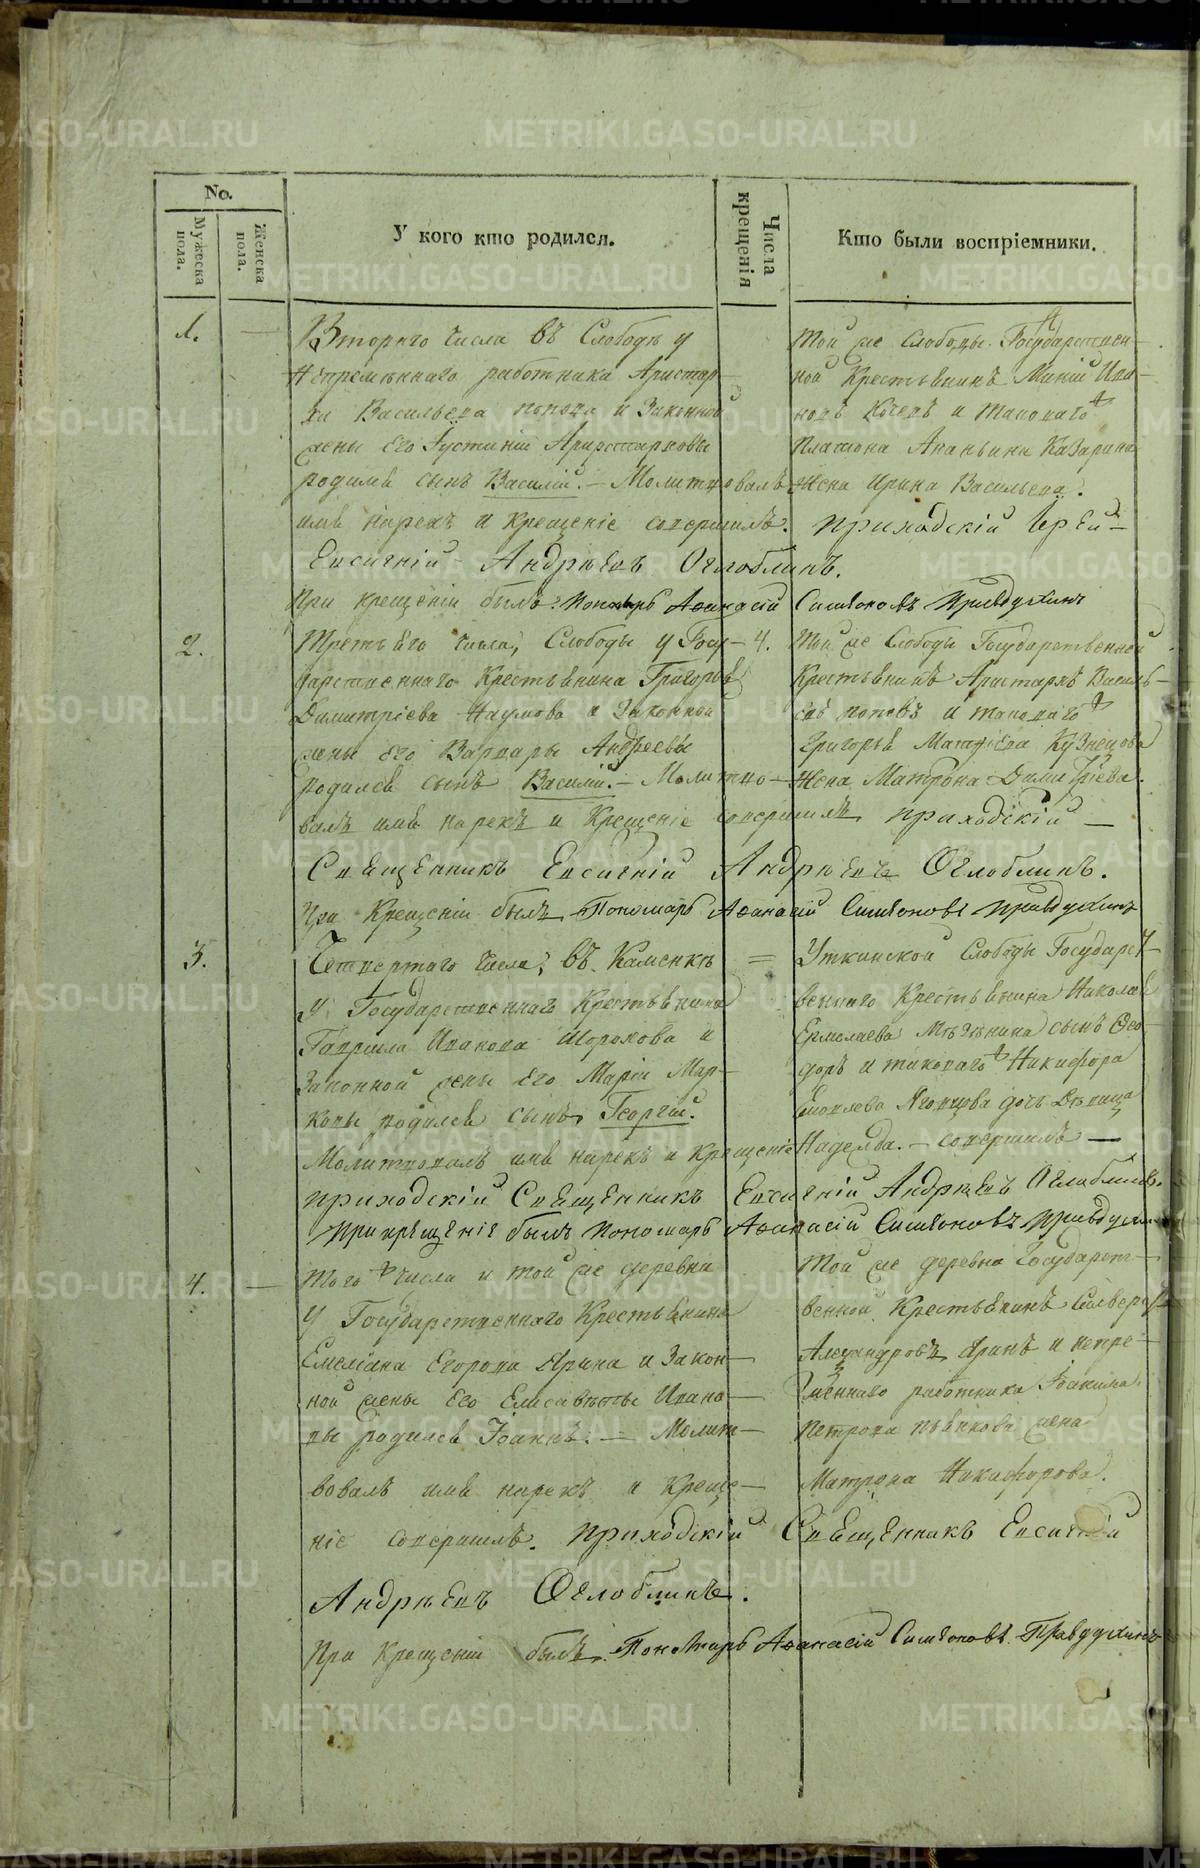 No.
Мужеска пола.
Женска пола.
У кого кто родился.
Числа крещенія
Кто были воспріемники.
1.
Втораго числа въ Слободѣ у
Непремѣннаго работника Аристар-
ха Васильева Попова и Законной
жены его Іустиніи Аристарховы
родился сынъ Василій. – Молитвовалъ
имя нарекъ и крещеніе совершилъ. приходскій Іерей
Евсигній Андрѣевъ Оглоблинъ.
При крещеніи былъ Пономарь Аѳанасій Симѣоновъ Правдухинъ
Той же Слободы Государствен-
ной Крестьянинъ Ива-
новъ и таковаго
Платона Ананьина Казарина
Жена Ирина Васильева.
2.
Третьяго числа, Слободы у Госу-
4.
дарственнаго Крестьянина Григорья
Димитріева Наумова и Законной
жены его Варвары Андреевы
родился сынъ Василій. – Молитво-
валъ имя нарекъ и Крещеніе совершилъ приходскій –
Священникъ Евсигній Андрѣевъ Оглоблинъ.
При Крещеніи былъ Пономарь Аѳанасій Симѣоновъ Правдухинъ
Той же Слободы Государственной
Крестьянинъ Аристархъ Василь-
евъ Поповъ и таковаго
Григорья Матфіева Кузнецова
Жена Матрона Димитріева.
3.
Четвертаго числа, въ Каменкѣ
=
у Государственнаго Крестьянина
Гаврила Иванова Шорохова и
Законной жены его Маріи Мар-
ковы родился сынъ Георгій.
Молитвовалъ имя нарекъ и Крещеніе
Уткинской Слободы Государст-
веннаго Крестьянина Николая
Ермолаева сынъ Ѳео-
доръ и таковаго Никифора
дочь Дѣвица
Надежда. – совершилъ –
приходскій Священникъ Евсигній Андрѣевъ Оглоблинъ.
При крещеніи былъ Пономарь Аѳанасій Симѣоновъ
4.
Того числа и той же деревни
У Государственнаго Крестьянина
Емеліана Егорова Ярина и Закон-
ной жены его Елисаветы Ивано-
вы родился Іоаннъ. – Молит-
вовалъ имя нарекъ и Креще-
ніе совершилъ. приходскій Священникъ Евсигній
Андрѣевъ Оглоблинъ.
При Крещеніи былъ Пономарь Аѳанасій Симѣоновъ Правдухинъ
Той же деревни Государст-
венной Крестьянинъ
Александровъ Яринъ и непре-
мѣннаго работника Іоакима
Петрова жена
Матрона Никифорова.
METRIKI.GASO-URAL.RU